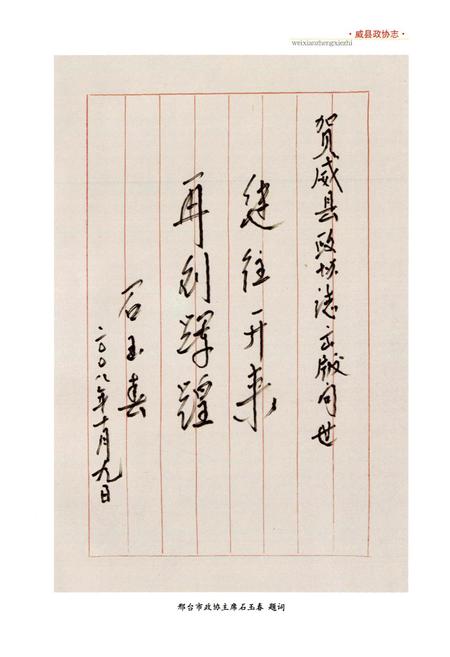 ·威县政协志·
weixianzhengxiezhi
贺威县政协志出版问世
继往开来
再创辉煌
石玉春
二〇〇八年十月九日
邢台市政协主席石玉春 题词